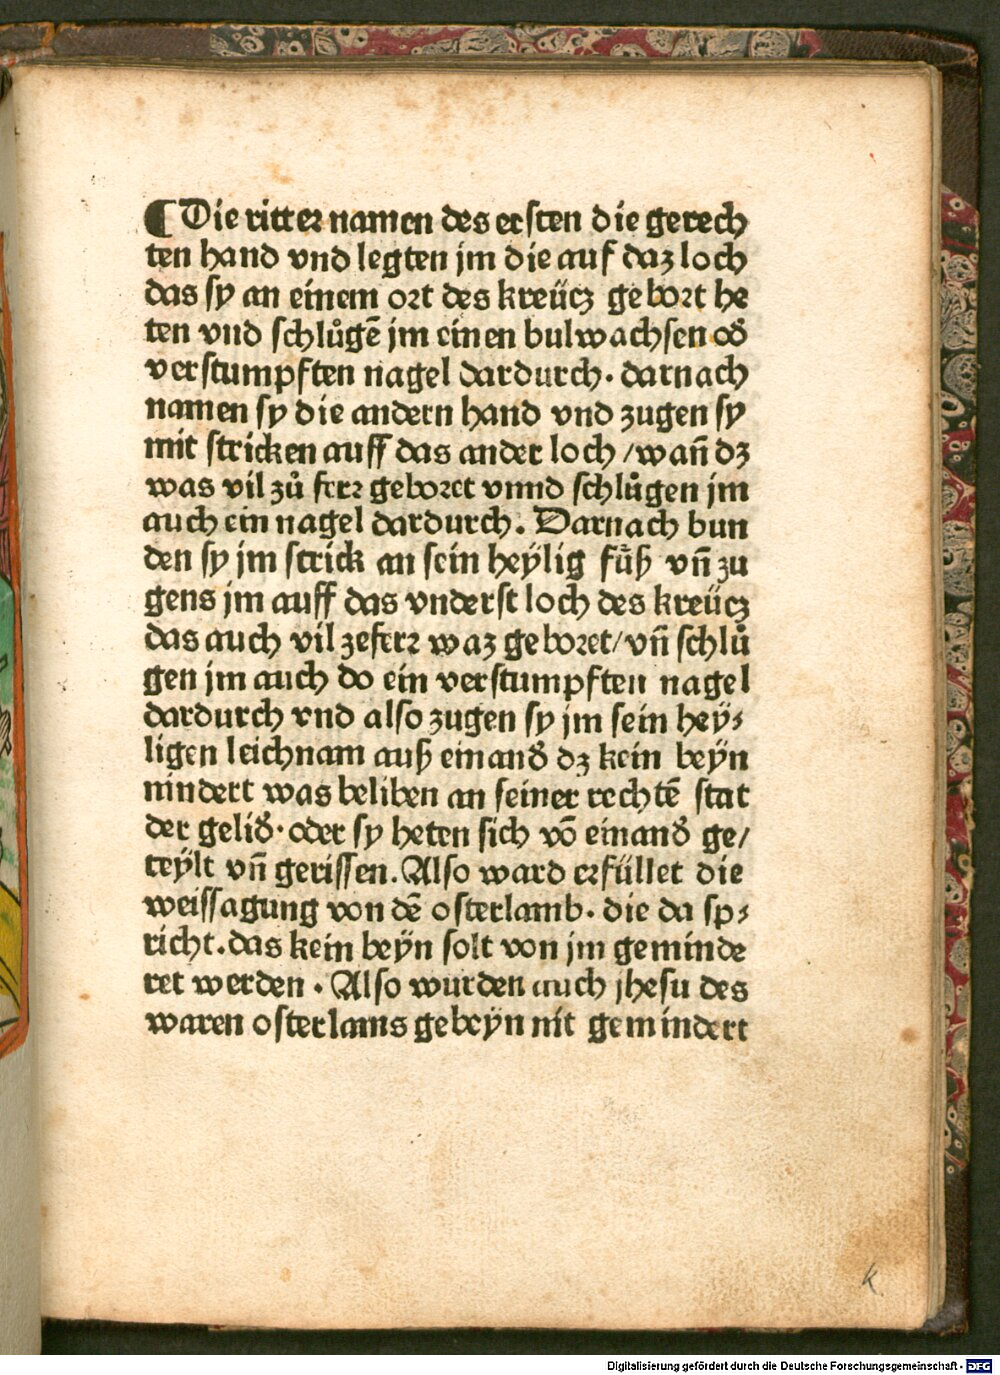 ¶ Die ritter namen des ersten die gerech
ten hand vnd legten jm die auf daz loch
das sy an einem ort des kreücz gebort he
ten vnd schlůgē jm einen bulwachsen od̓
verstumpften nagel dardurch. darnach
namen sy die andern hand vnd zugen sy
mit stricken auff das ander loch / wañ dz
was vil zů ferr geboret vnnd schlůgen jm
auch ein nagel dardurch. Darnach bun
den sy jm strick an sein heÿlig fůß vñ zu
gens jm auff das vnderst loch des kreücz
das auch vil zeferr waz geboret / vñ schlů
gen jm auch do ein verstumpften nagel
dardurch vnd also zugen sy jm sein heÿ⸗
ligen leichnam auß einand̓ dz kein beÿn
nindert was beliben an seiner rechtē stat
der gelid̓. oder sy heten sich vō einand̓ ge/
teÿlt vñ gerissen. Also ward erfüllet die
weissagung von dē osterlamb. die da sp⸗
richt. das kein beÿn solt von jm geminde
ret werden. Also wurden auch jhesu des
waren osterlams gebeÿn nit gemindert
k
Digitalisierung gefördert durch die Deutsche Forschungsgemeinschaft - DFG